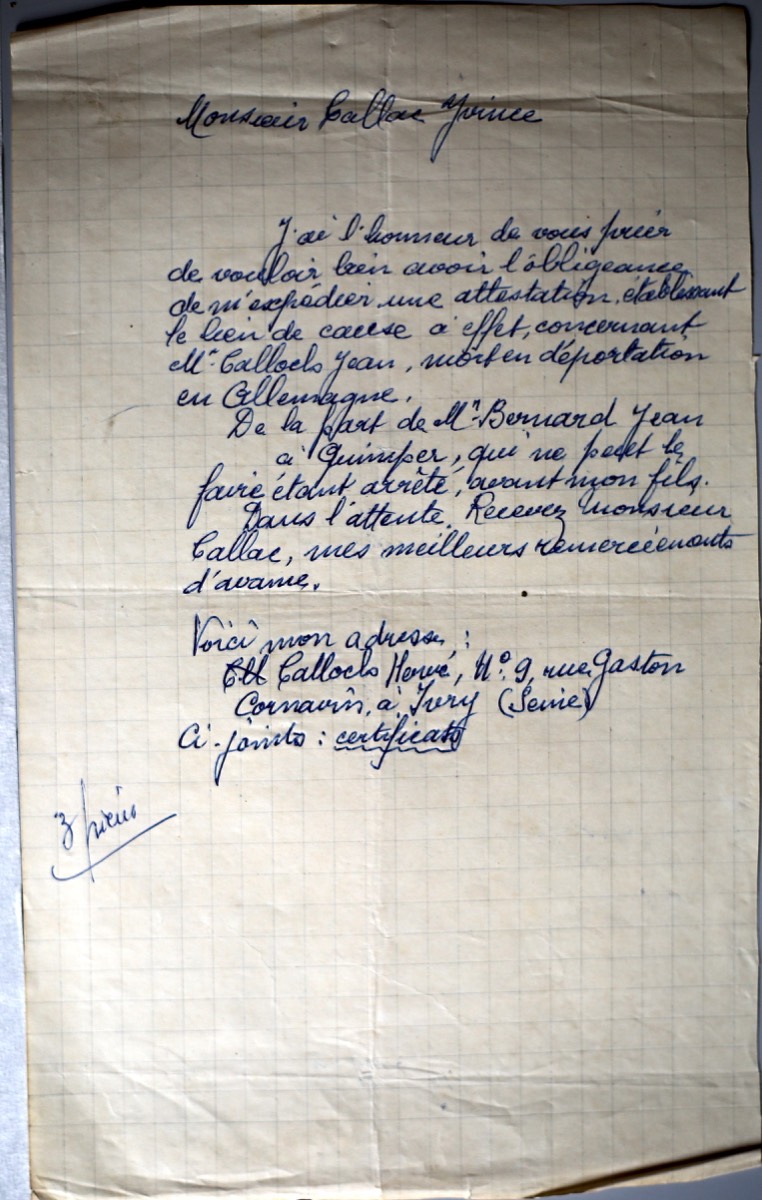 Monsieur Callac Yvince
J'ai l'honneur de vous prier
de vouloir bien avoir l'obligeance
de m'expédier une attestation, établissant
le lien de cause à effet, concernant
Mr Callochs Jean, mort en déportation
en Allemagne.
De la part de Mr Bernard Jean
à Quimper, qui ne peut le
faire étant arrêté, avant mon fils.
Dans l'attente. Recevez Monsieur
Callac, mes meilleurs remerciements
d'avance.
Voici mon adresse :
Callochs Hervé, N° 9, rue Gaston
Cornavin, à Ivry (Seine)
Ci-joints : certificats
3 pièces